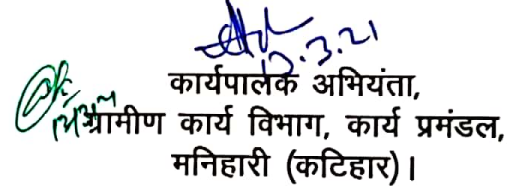 12.3.21
कार्यपालक अभियंता,
ग्रामीण कार्य विभाग, कार्य प्रमंडल,
मनिहारी (कटिहार)।